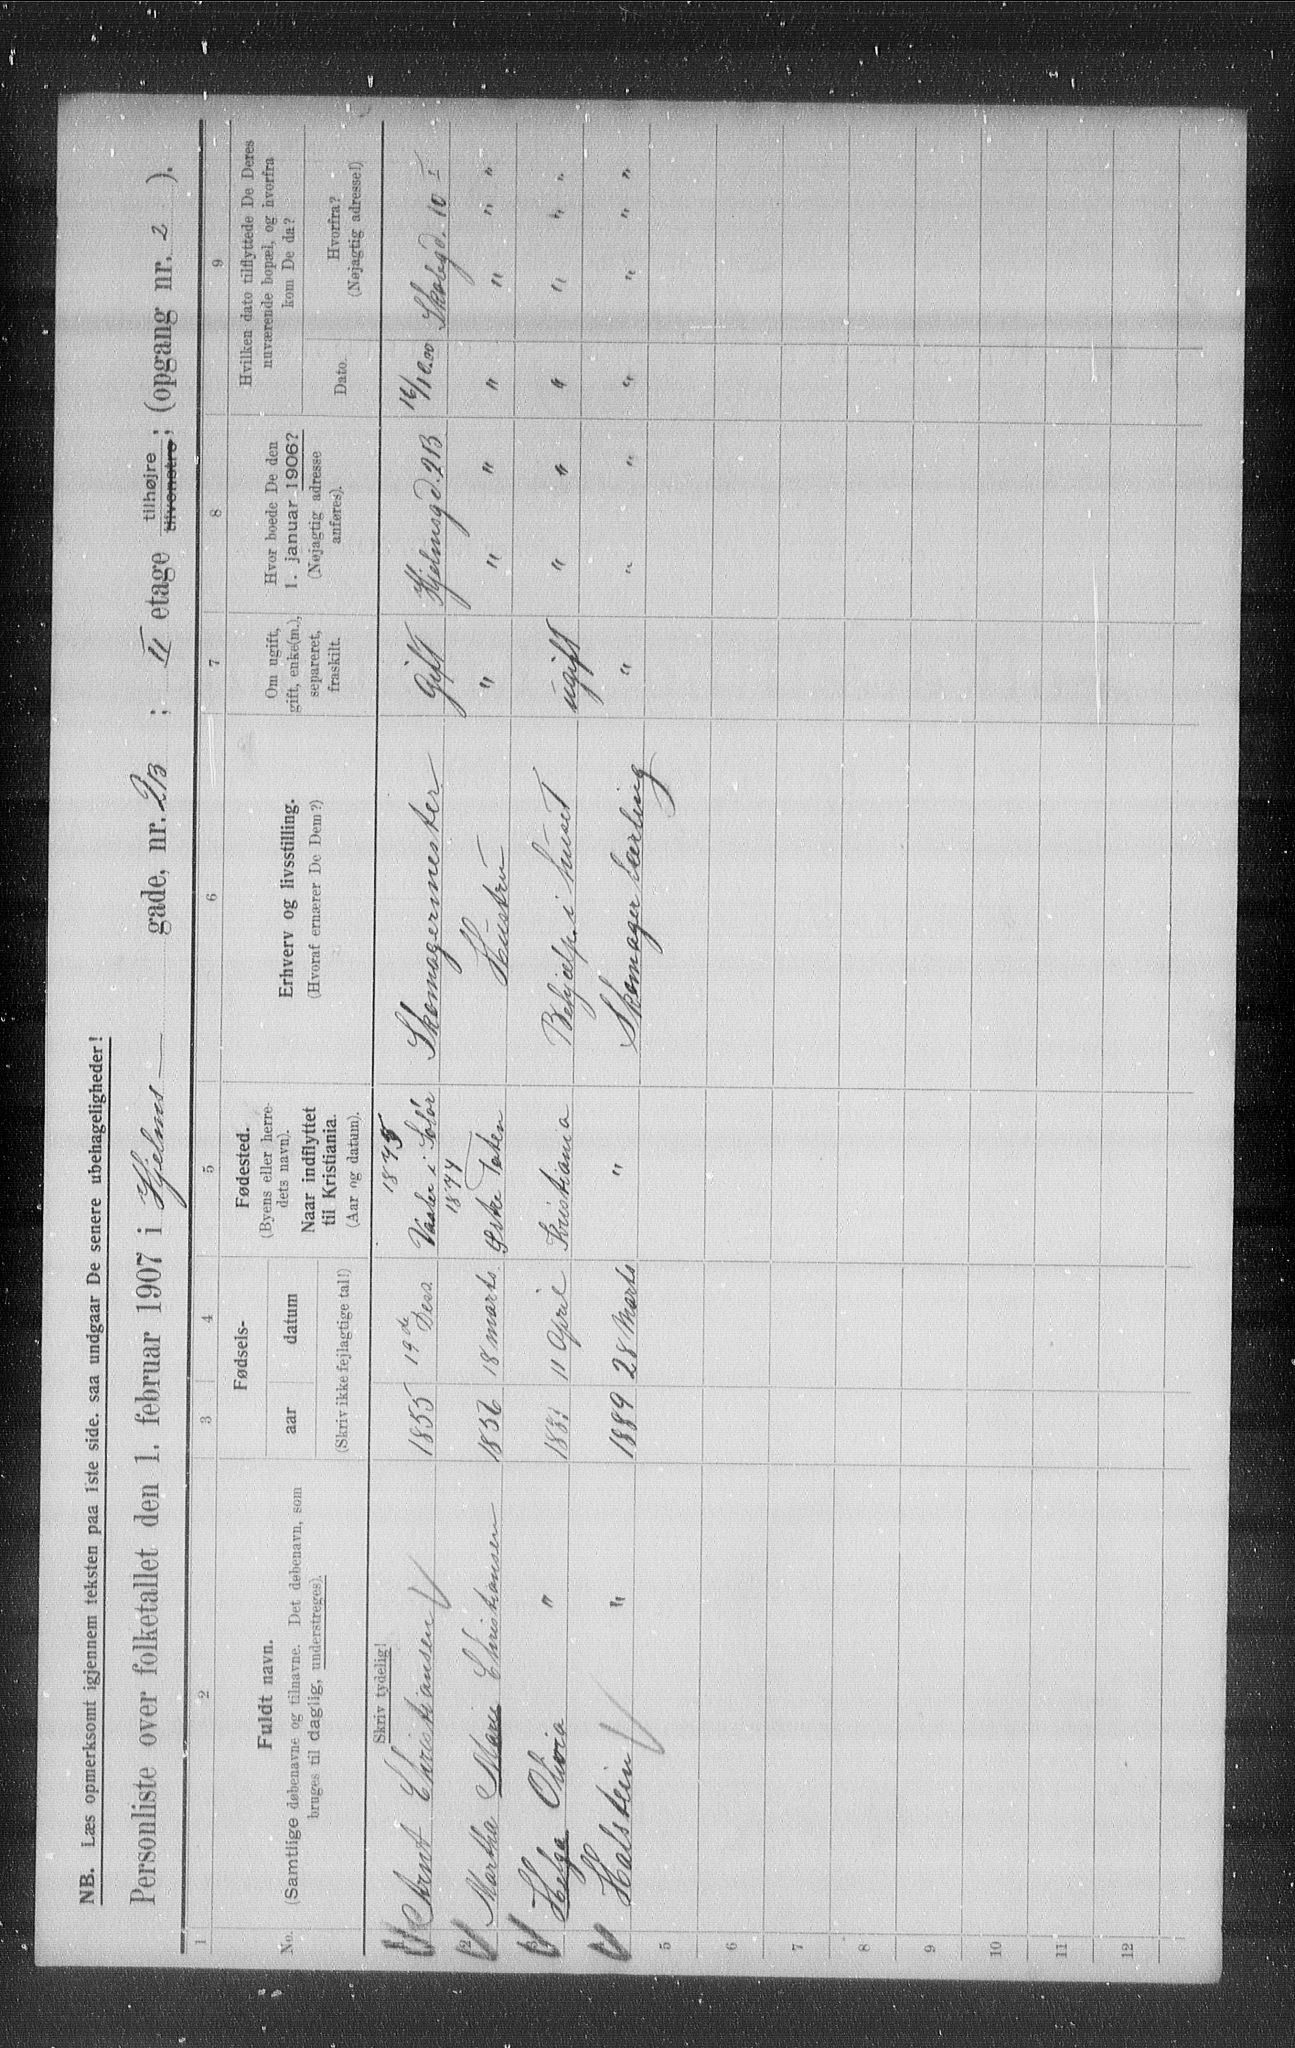 NB. Læs opmerksomt igjennem teksten paa 1ste side, saa undgaar De senere ubehageligheder!
Personliste over folketallet den 1. februar 1907 i Hjelms gade, nr. 2B ; II etage tilhøjre tilvenstre; (opgang nr. 2 ).
1 2 3 4 5 6 7 8 9
No. Fuldt navn. (Samtlige døbenavne og tilnavne. Det døbenavn, som bruges til daglig, understreges).
Fødsels- aar datum (Skriv ikke fejlagtige tal!)
Fødested. (Byens eller herredets navn). Naar indflyttet til Kristiania. (Aar og datum).
Erhverv og livsstilling. (Hvoraf ernærer De Dem?)
Om ugift, gift, enke(m.), separeret, fraskilt.
Hvor boede De den 1. januar 1906? (Nøjagtig adresse anføres).
Hvilken dato tilflyttede De Deres nuværende bopæl, og hvorfra kom De da?
Dato. Hvorfra? (Nøjagtig adresse!)
Skriv tydelig!
1 Arnt Christiansen 1855 19de Des. 1875 Vaaler i Solør Skomagermester Gift Hjelmsgd. 2B 16/10.00 Skolegd. 10
2 Martha Marie Christiansen 1856 18 marts. 1877 Østre Toten Hustru " " " " " " "
3 Helga Olivia " 11 April Kristiania Behjælp. i huset ugift " " " " " "
4 Halstein " 1889 28 Marts " Skomager lærling " " " " " " "
5
6
7
8
9
10
11
12